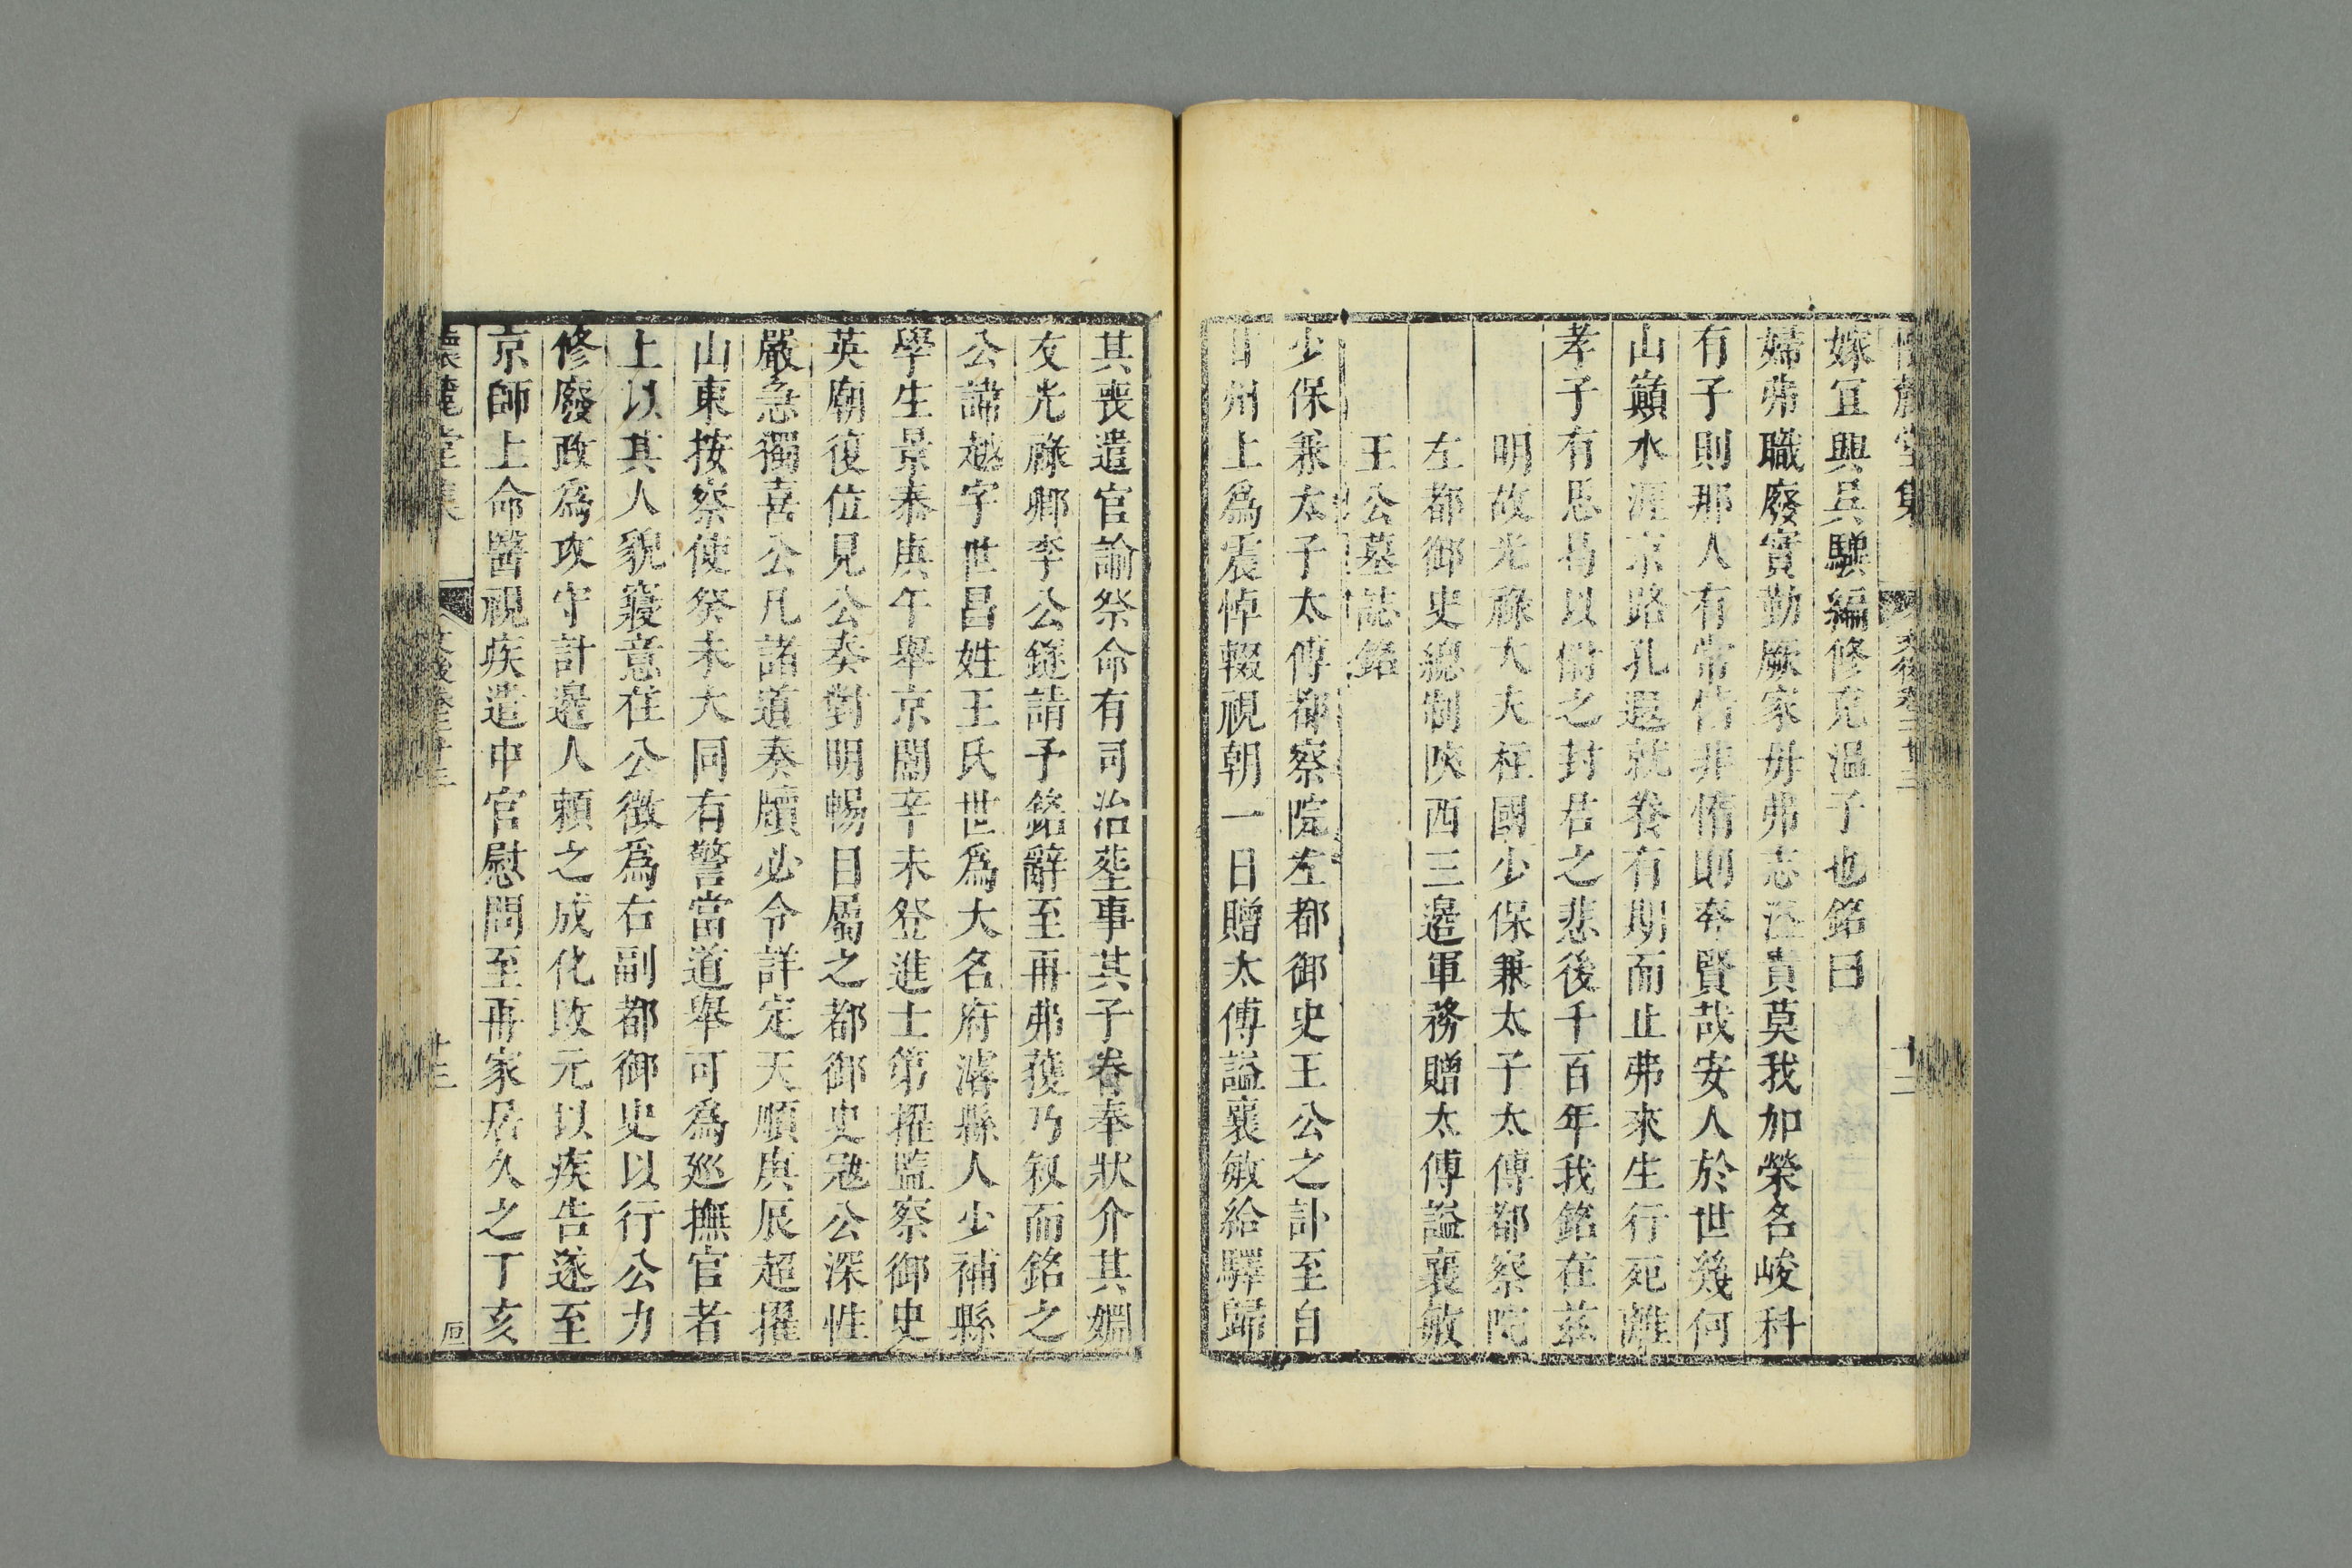 嫁宜興吳驥編修克溫子也銘曰
婦弗職廢實勤厥家毋弗志溢貴莫我加榮名峻科
有子則那人有常情非惰則奢賢哉安人於世幾何
山巔水涯京路孔遐就養有期而止弗來生行死離
孝子有思曷以償之封君之悲後千百年我銘在茲
明故光祿大夫柱國少保兼太子太傅都察院
左都御史總制陝西三邊軍務贈太傅謚襄敏
王公墓誌銘
少保兼太子太傅都察院左都御史王公之訃至自
甘州上為震悼輟視朝一日贈太傅謚襄敏給驛歸
其喪遣官諭祭命有司治塟事其子春奉狀介其姻
友光祿卿李公鐩請予銘辭至再弗獲乃叙而銘之
公諱越字世昌姓王氏世為大名府濬縣人少補縣
學生景泰庚午舉京闈辛未登進士第擢監察御史
英廟復位見公奏對明暢目屬之都御史寇公深性
嚴急獨喜公凡諸道奏牘必令詳定天順庚辰超擢
山東按察使癸未大同有警當道舉可為廵撫官者
上以其人貌寢意在公徵為右副都御史以行公力
修廢政為攻守計邊人賴之成化改元以疾告遂至
京師上命醫視疾遣中官慰問至再家居久之丁亥
懷麓堂集